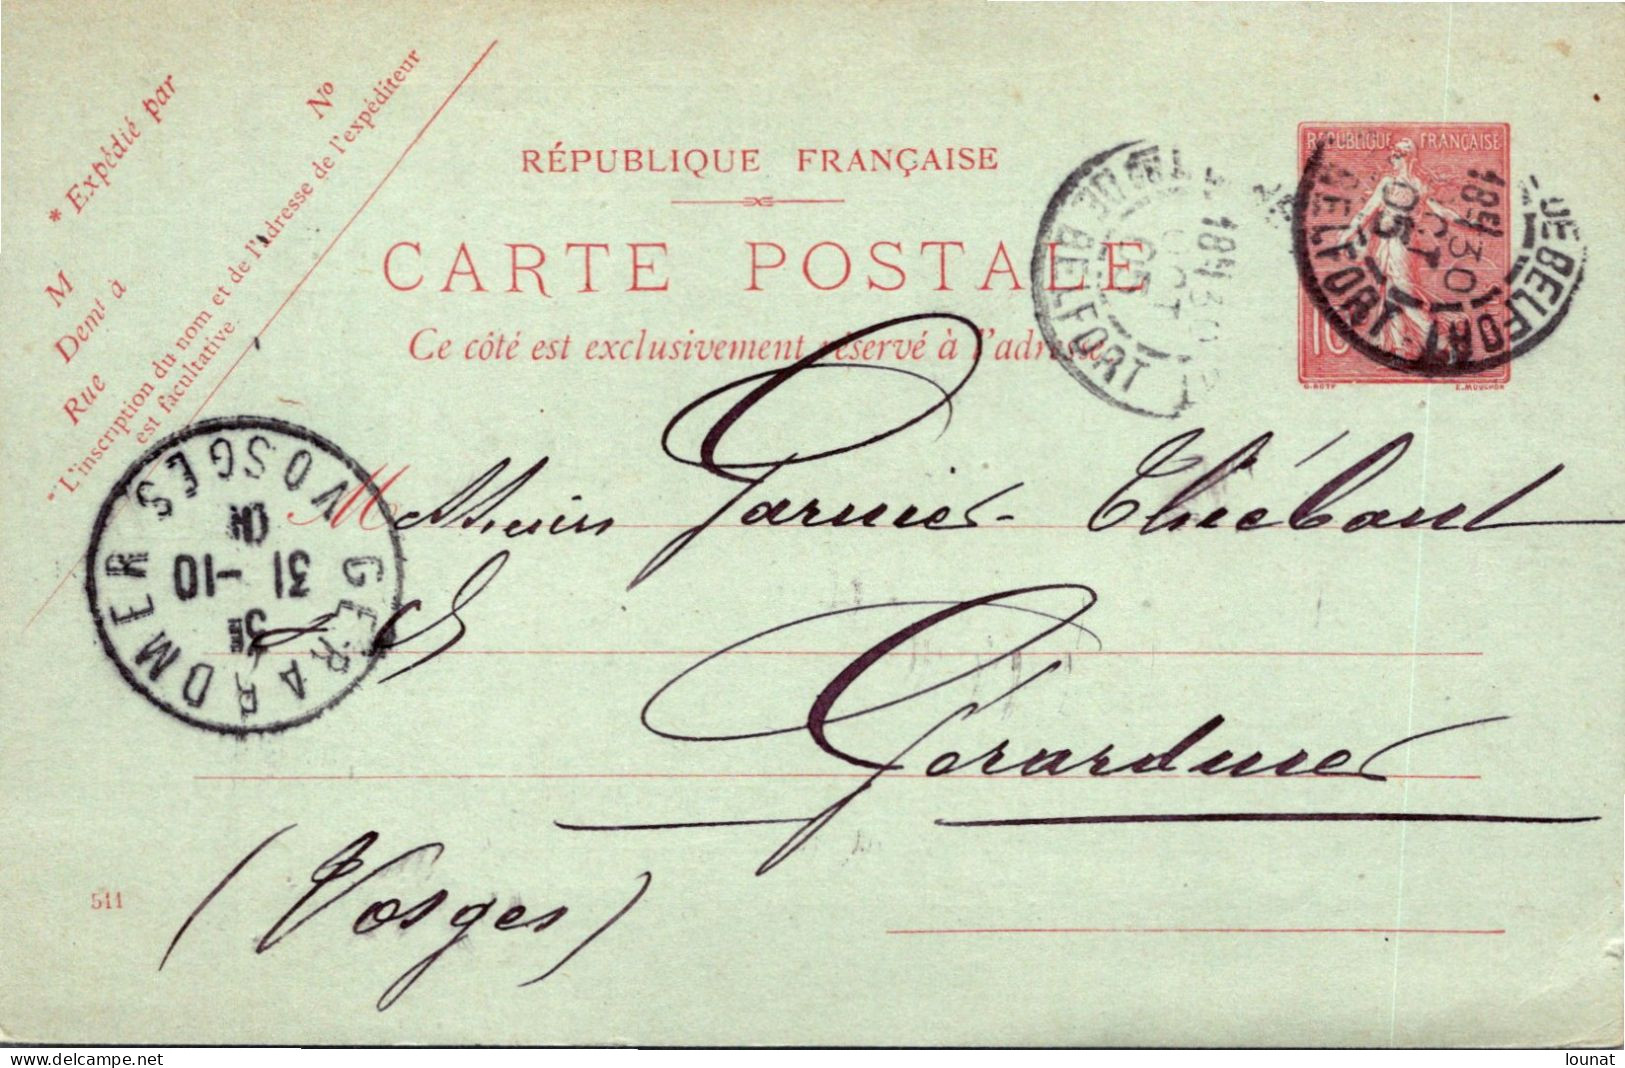 * Expédié par
M
Demt à
Rue
No
* L'inscription du nom et de l'adresse de l'expéditeur
est facultative.
RÉPUBLIQUE FRANÇAISE
CARTE POSTALE
Ce côté est exclusivement réservé à l'adresse
REPUBLIQUE FRANÇAISE
10
O. ROTY
E. MOUCHON
DE BELFORT
18H30
OCT
05
DE BELFORT
18H30
OCT
05
GERARDMER VOSGES
31 -10
Messieurs Garnier-Thiébaut
Gérardmer
(Vosges)
511
delcampe.net
lounat